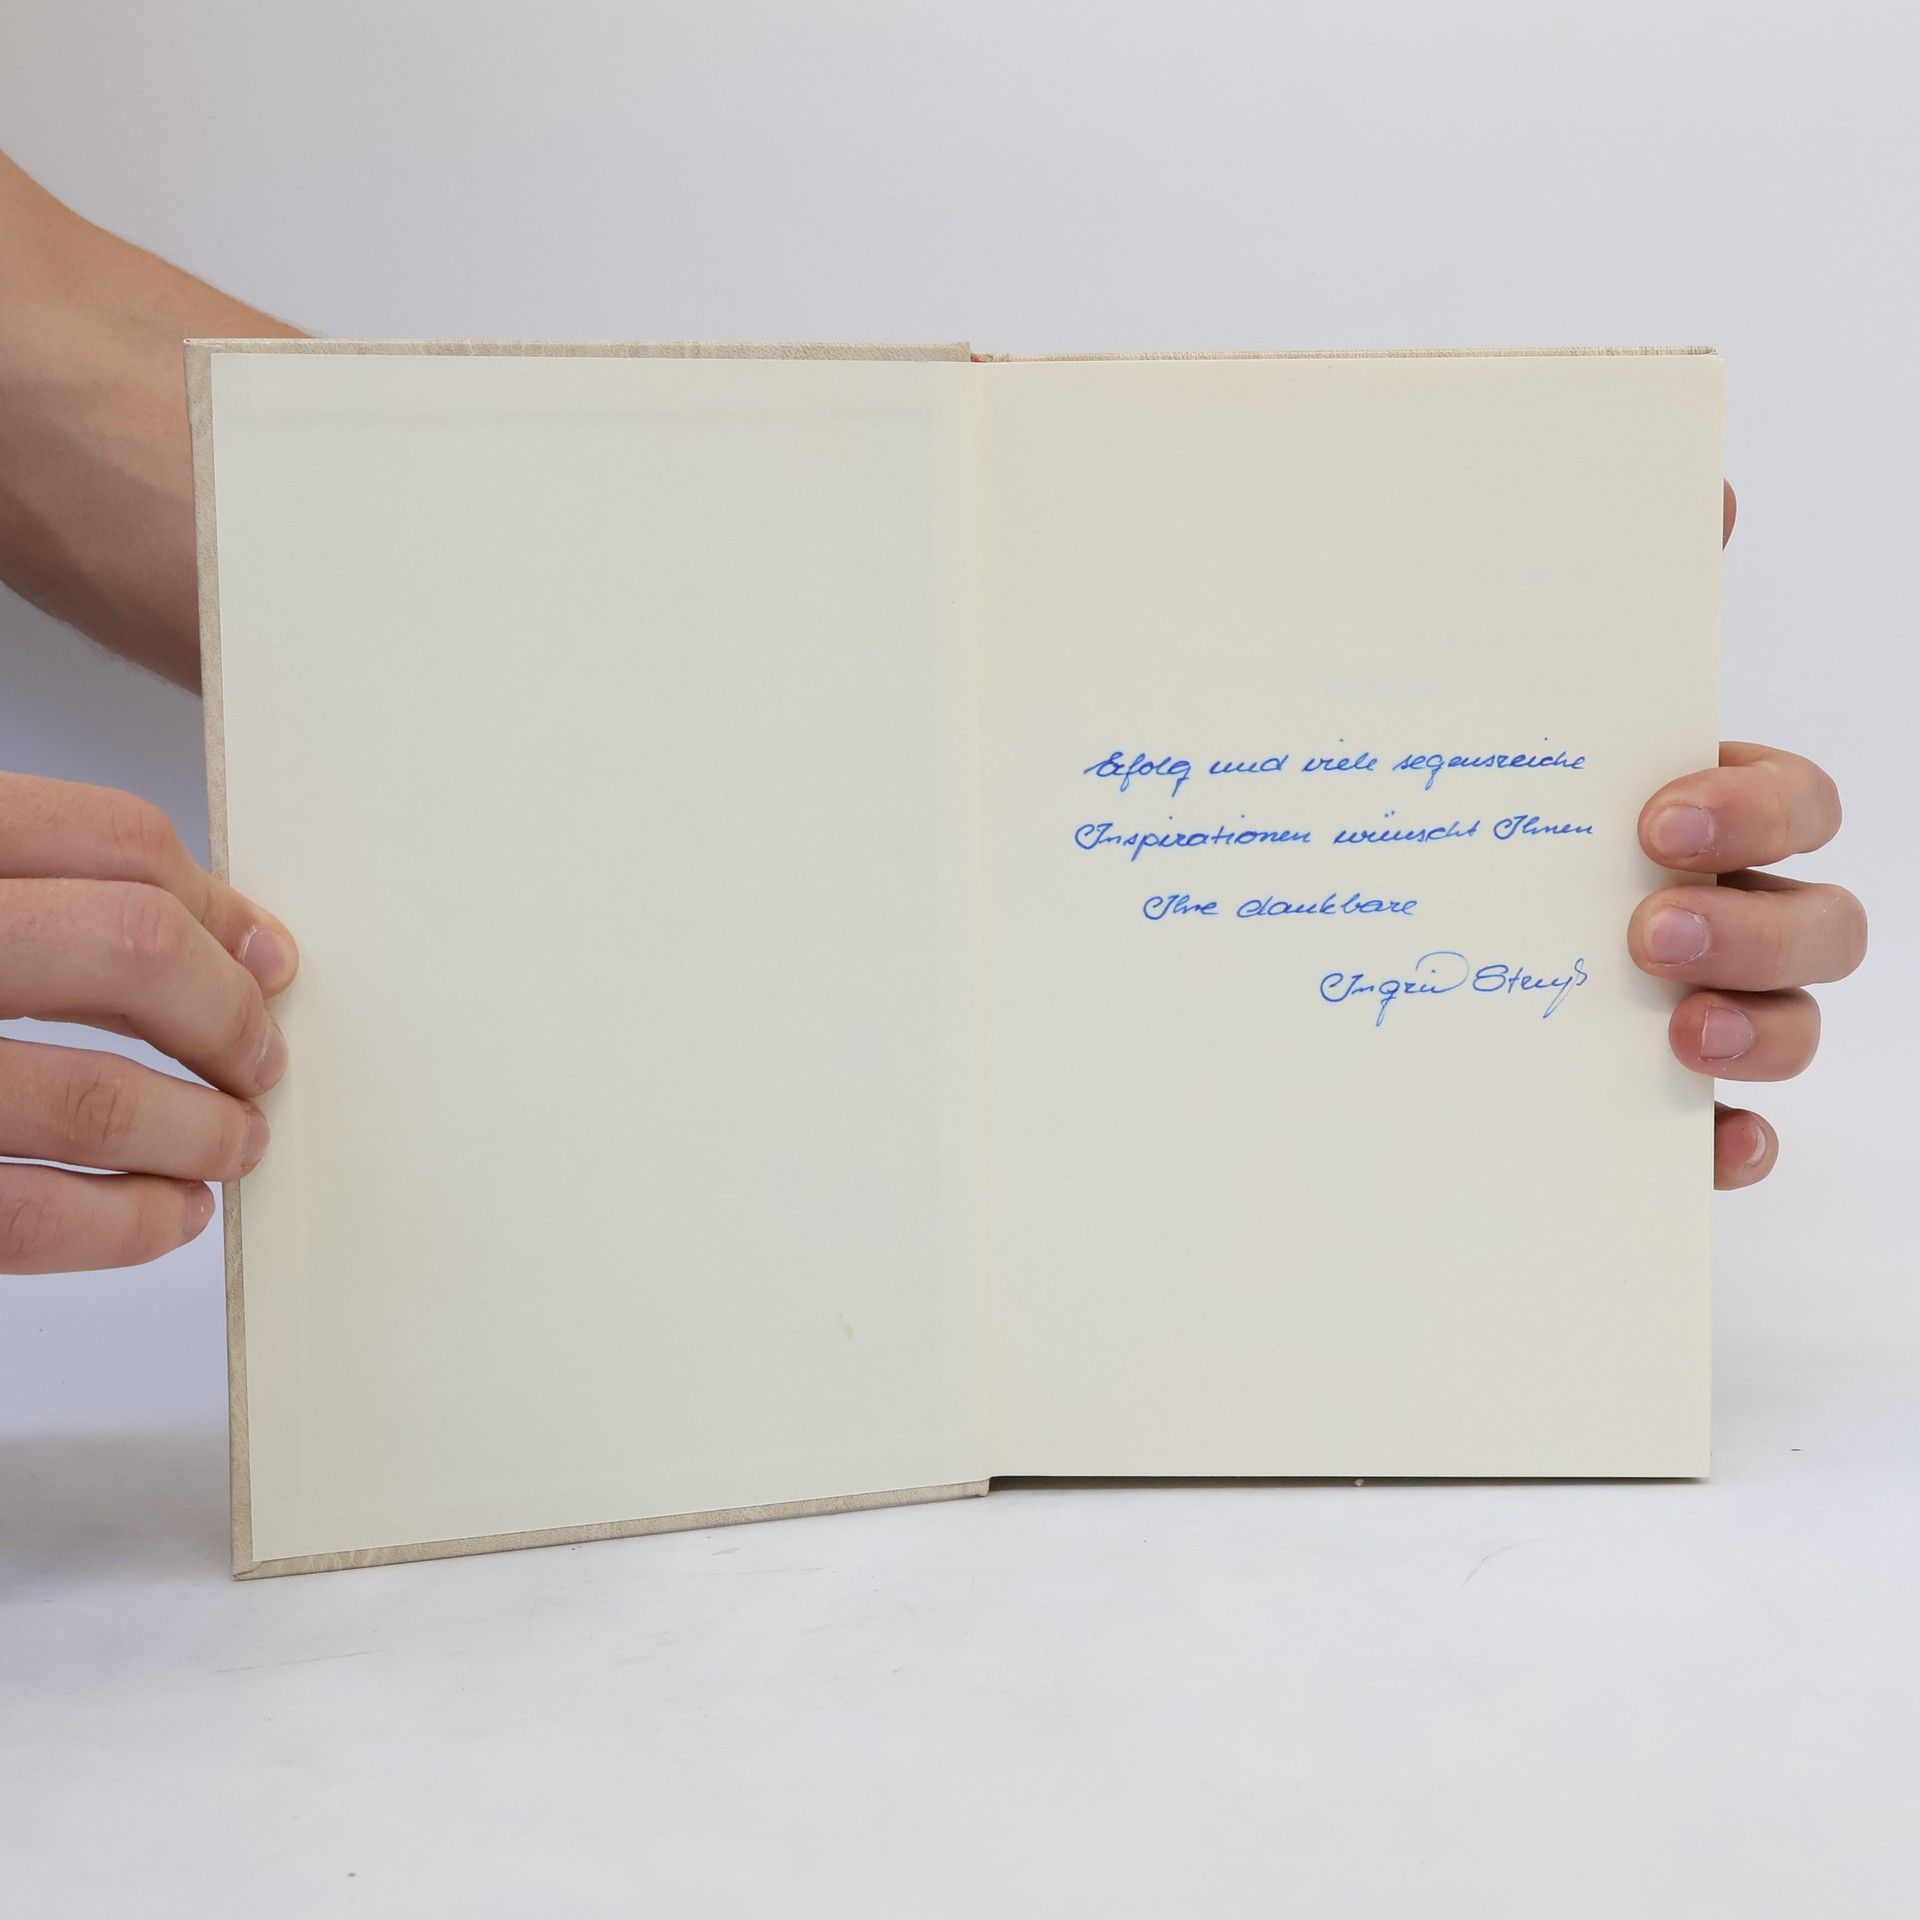 Erfolg und viele segensreiche
Inspirationen wünscht Ihnen
Ihre dankbare
Ingrid